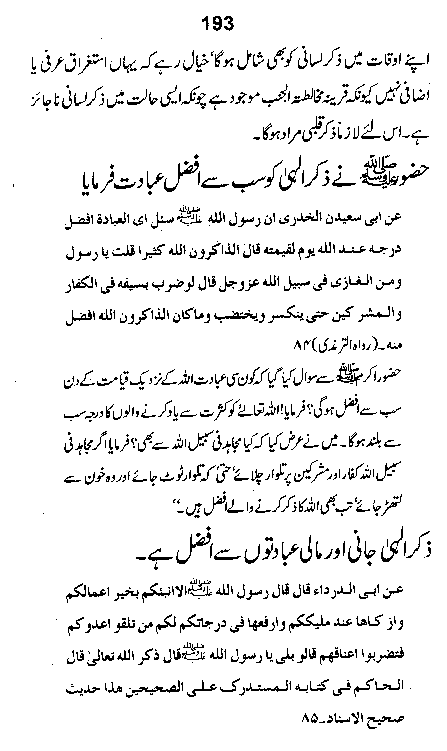 193
اپنے اوقات میں ذکر لسانی کو بھی شامل ہوگا، خیال رہے کہ یہاں استغراق عرفی یا
اضافی نہیں کیونکہ قرینہ مخالطتہ الجب موجود ہے چونکہ ایسی حالت میں ذکر لسانی ناجائز
ہے۔ اس لئے لازماً ذکر قلبی مراد ہوگا۔
حضور ﷺ نے ذکر الٰہی کو سب سے افضل عبادت فرمایا
عن ابی سعیدن الخدری ان رسول اللہ ﷺ سئل ای العبادۃ افضل
درجہ عند اللہ یوم لقیمتہ قال الذاکرون اللہ کثیرا قلت یا رسول
ومن الغازی فی سبیل اللہ عزوجل قال لو ضرب بسیفہ فی الکفار
والمشرکین حتی ینکسر ویختضب وماکان الذاکرون اللہ افضل
منہ۔ (رواہ الترمذی) ۸۴
حضور اکرم ﷺ سے سوال کیا گیا کہ کون سی عبادت اللہ کے نزدیک قیامت کے دن
سب سے افضل ہوگی؟ فرمایا! اللہ تعالیٰ کو کثرت سے یاد کرنے والوں کا درجہ سب
سے بلند ہوگا۔ میں نے عرض کیا کہ کیا مجاہد فی سبیل اللہ سے بھی؟ فرمایا اگر مجاہد فی
سبیل اللہ کفار اور مشرکین پر تلوار چلائے حتیٰ کہ تلوار ٹوٹ جائے اور وہ خون سے
لتھڑ جائے تب بھی اللہ کا ذکر کرنے والے افضل ہیں۔"
ذکر الٰہی جانی اور مالی عبادتوں سے افضل ہے۔
عن ابی الدرداء قال قال رسول اللہ ﷺ الا انبئکم بخیر اعمالکم
واز کاھا عند ملیککم وارفعھا فی درجاتکم لکم من تلقو اعدوکم
فتضربوا اعناقھم قالو بلی یا رسول اللہ ﷺ قال ذکر اللہ تعالیٰ قال
الحاکم فی کتابہ المستدرک علی الصحیحین ھذا حدیث
صحیح الاسناد۔ ۸۵